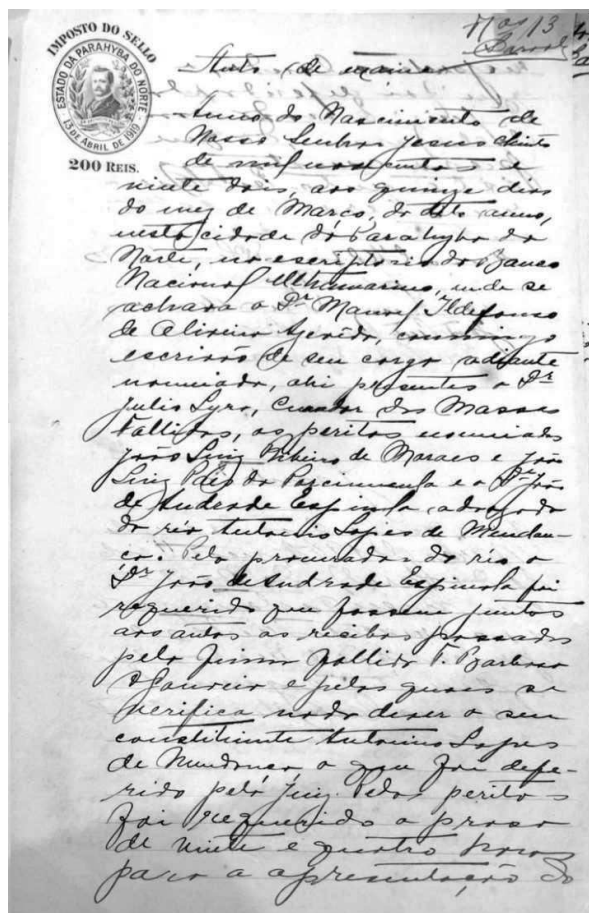 IMPOSTO DO SELLO
ESTADO DA PARAHYBA DO NORTE
13 DE ABRIL DE 1919
200 REIS.
13
Auto de exame
Anno do Nascimento de
Nosso Senhor Jesus Christo
de mil novecentos e
vinte dois, aos quinze dias
do mez de Março, do dito anno,
nesta cidade da Parahyba do
Norte, no escriptorio do Banco
Nacional Ultramarino, onde se
achava o Dr Manoel Ildefonso
de Oliveira Azevêdo, commigo
escrivão de seu cargo adiante
nomeado, ahi presentes o Dr
Julio Lyra, Curador das Massas
Fallidas, os peritos nomeados
João Luiz Ribeiro de Moraes e João
Luiz do e o Dr João
de Andrade Espinola advogado
do réo Antonio Lopes de Mendon-
ça. Pelo procurador do réo o
Dr João de Andrade Espinola foi
requerido que fossem juntos
aos autos os recibos passados
pela firma fallida F. Barbosa
& e pelos quaes se
verifica nada dever o seu
constituinte Antonio Lopes
de Mendonça o que foi defe-
rido pelo juiz. Pelos peritos
foi requerido o praso
de vinte e quatro horas
para a apresentação do